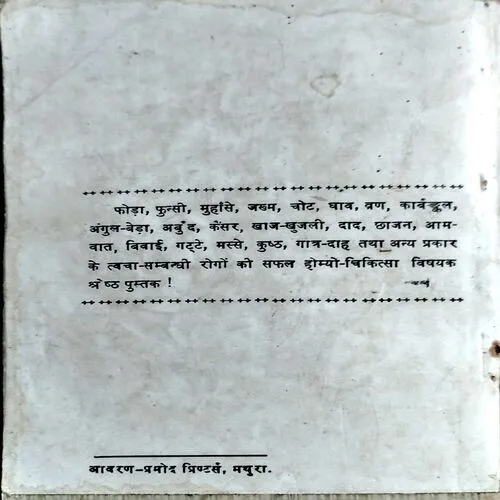 फोड़ा, फुन्सी, मुहांसे, जख्म, चोट, घाव, व्रण, कार्वङ्कल,
अंगुल-बेड़ा, अर्बुद, कैंसर, खाज-खुजली, दाद, छाजन, आम-
वात, बिवाई, गट्टे, मस्से, कुष्ठ, गात्र-दाह तथा अन्य प्रकार
के त्वचा-सम्बन्धी रोगों की सफल होम्यो-चिकित्सा विषयक
श्रेष्ठ पुस्तक !
आवरण-प्रमोद प्रिण्टर्स, मथुरा.